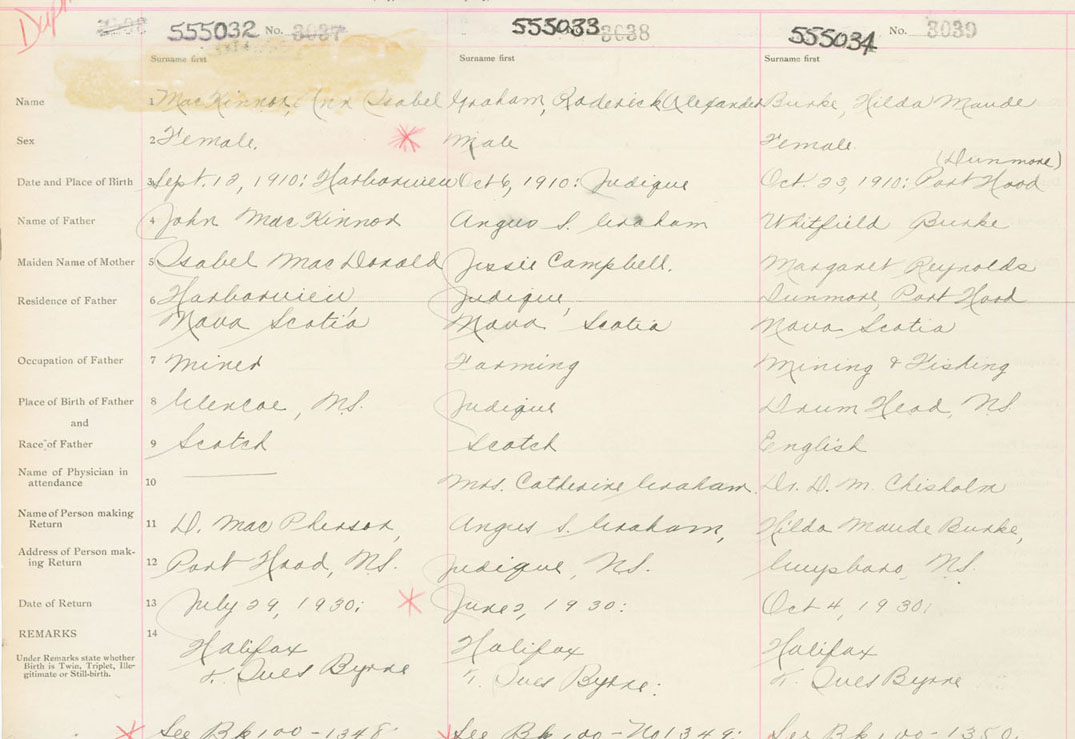 555032 No. 3037 555033 3038 555034 No. 3039
Surname first Surname first Surname first
Name 1 MacKinnon, Ann Isabel Graham, Roderick Alexander Burke, Hilda Maude
Sex 2 Female. Male Female
(Dunmore)
Date and Place of Birth 3 Sept. 12, 1910: Harborview Oct 6, 1910: Judique Oct. 23, 1910: Port Hood
Name of Father 4 John MacKinnon Angus S. Graham Whitfield Burke
Maiden Name of Mother 5 Isabel MacDonald Jessie Campbell. Margaret Reynolds
Residence of Father 6 Harborview Judique, Dunmore, Port Hood
Nova Scotia Nova Scotia Nova Scotia
Occupation of Father 7 Miner Farming Mining & Fishing
Place of Birth of Father 8 Glencoe, N.S. Judique Drum Head, N.S.
and
Race of Father 9 Scotch Scotch English
Name of Physician in
attendance 10 Mrs. Catherine Graham. Dr. D. M. Chisholm
Name of Person making
Return 11 D. MacPherson, Angus S. Graham, Hilda Maude Burke,
Address of Person mak-
ing Return 12 Port Hood, N.S. Judique, N.S. Guysboro, N.S.
Date of Return 13 July 29, 1930: June 2, 1930: Oct 4, 1930:
REMARKS 14 Halifax Halifax Halifax
Under Remarks state whether
Birth is Twin, Triplet, Ille-
gitimate or Still-birth.
Byrne Byrne: Byrne
See Bk 100-1348: See Bk 100-No 1349: See Bk 100-1350: